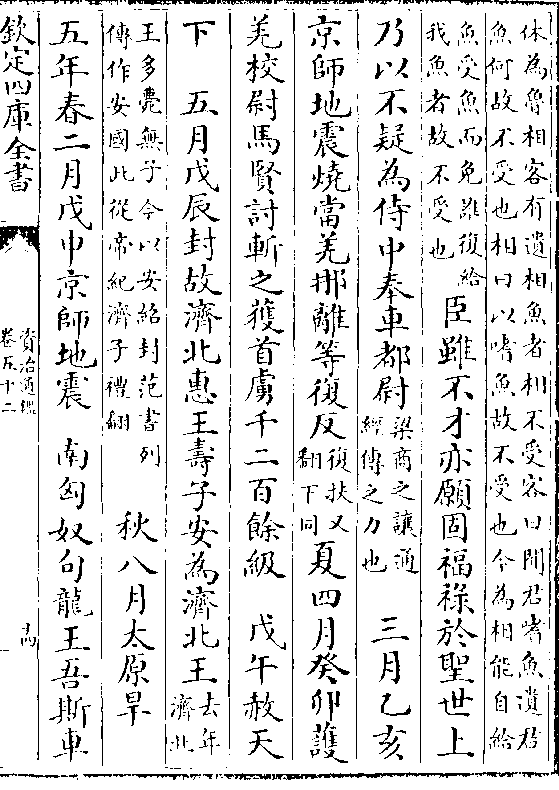 休為魯相客有遺相魚者相不受客曰聞君嗜魚遺君
魚何故不受也相曰以嗜魚故不受也今為相能自給
魚受魚而免誰復給
我魚者故不受也
臣雖不才亦願固福祿於聖世上
乃以不疑為侍中奉車都尉
梁商之讓通
經傳之力也
三月乙亥
京師地震燒當羌那離等復反
復扶又
翻下同
夏四月癸卯護
羌校尉馬賢討斬之獲首虜千二百餘級　戊午赦天
下　五月戊辰封故濟北惠王壽子安為濟北王
去年
濟北
王多薨無子今以安紹封范書列
傳作安國此從帝紀濟子禮翻
秋八月太原旱
五年春二月戊申京師地震　南匈奴句龍王吾斯車
欽定四庫全書
資治通鑑
卷五十二